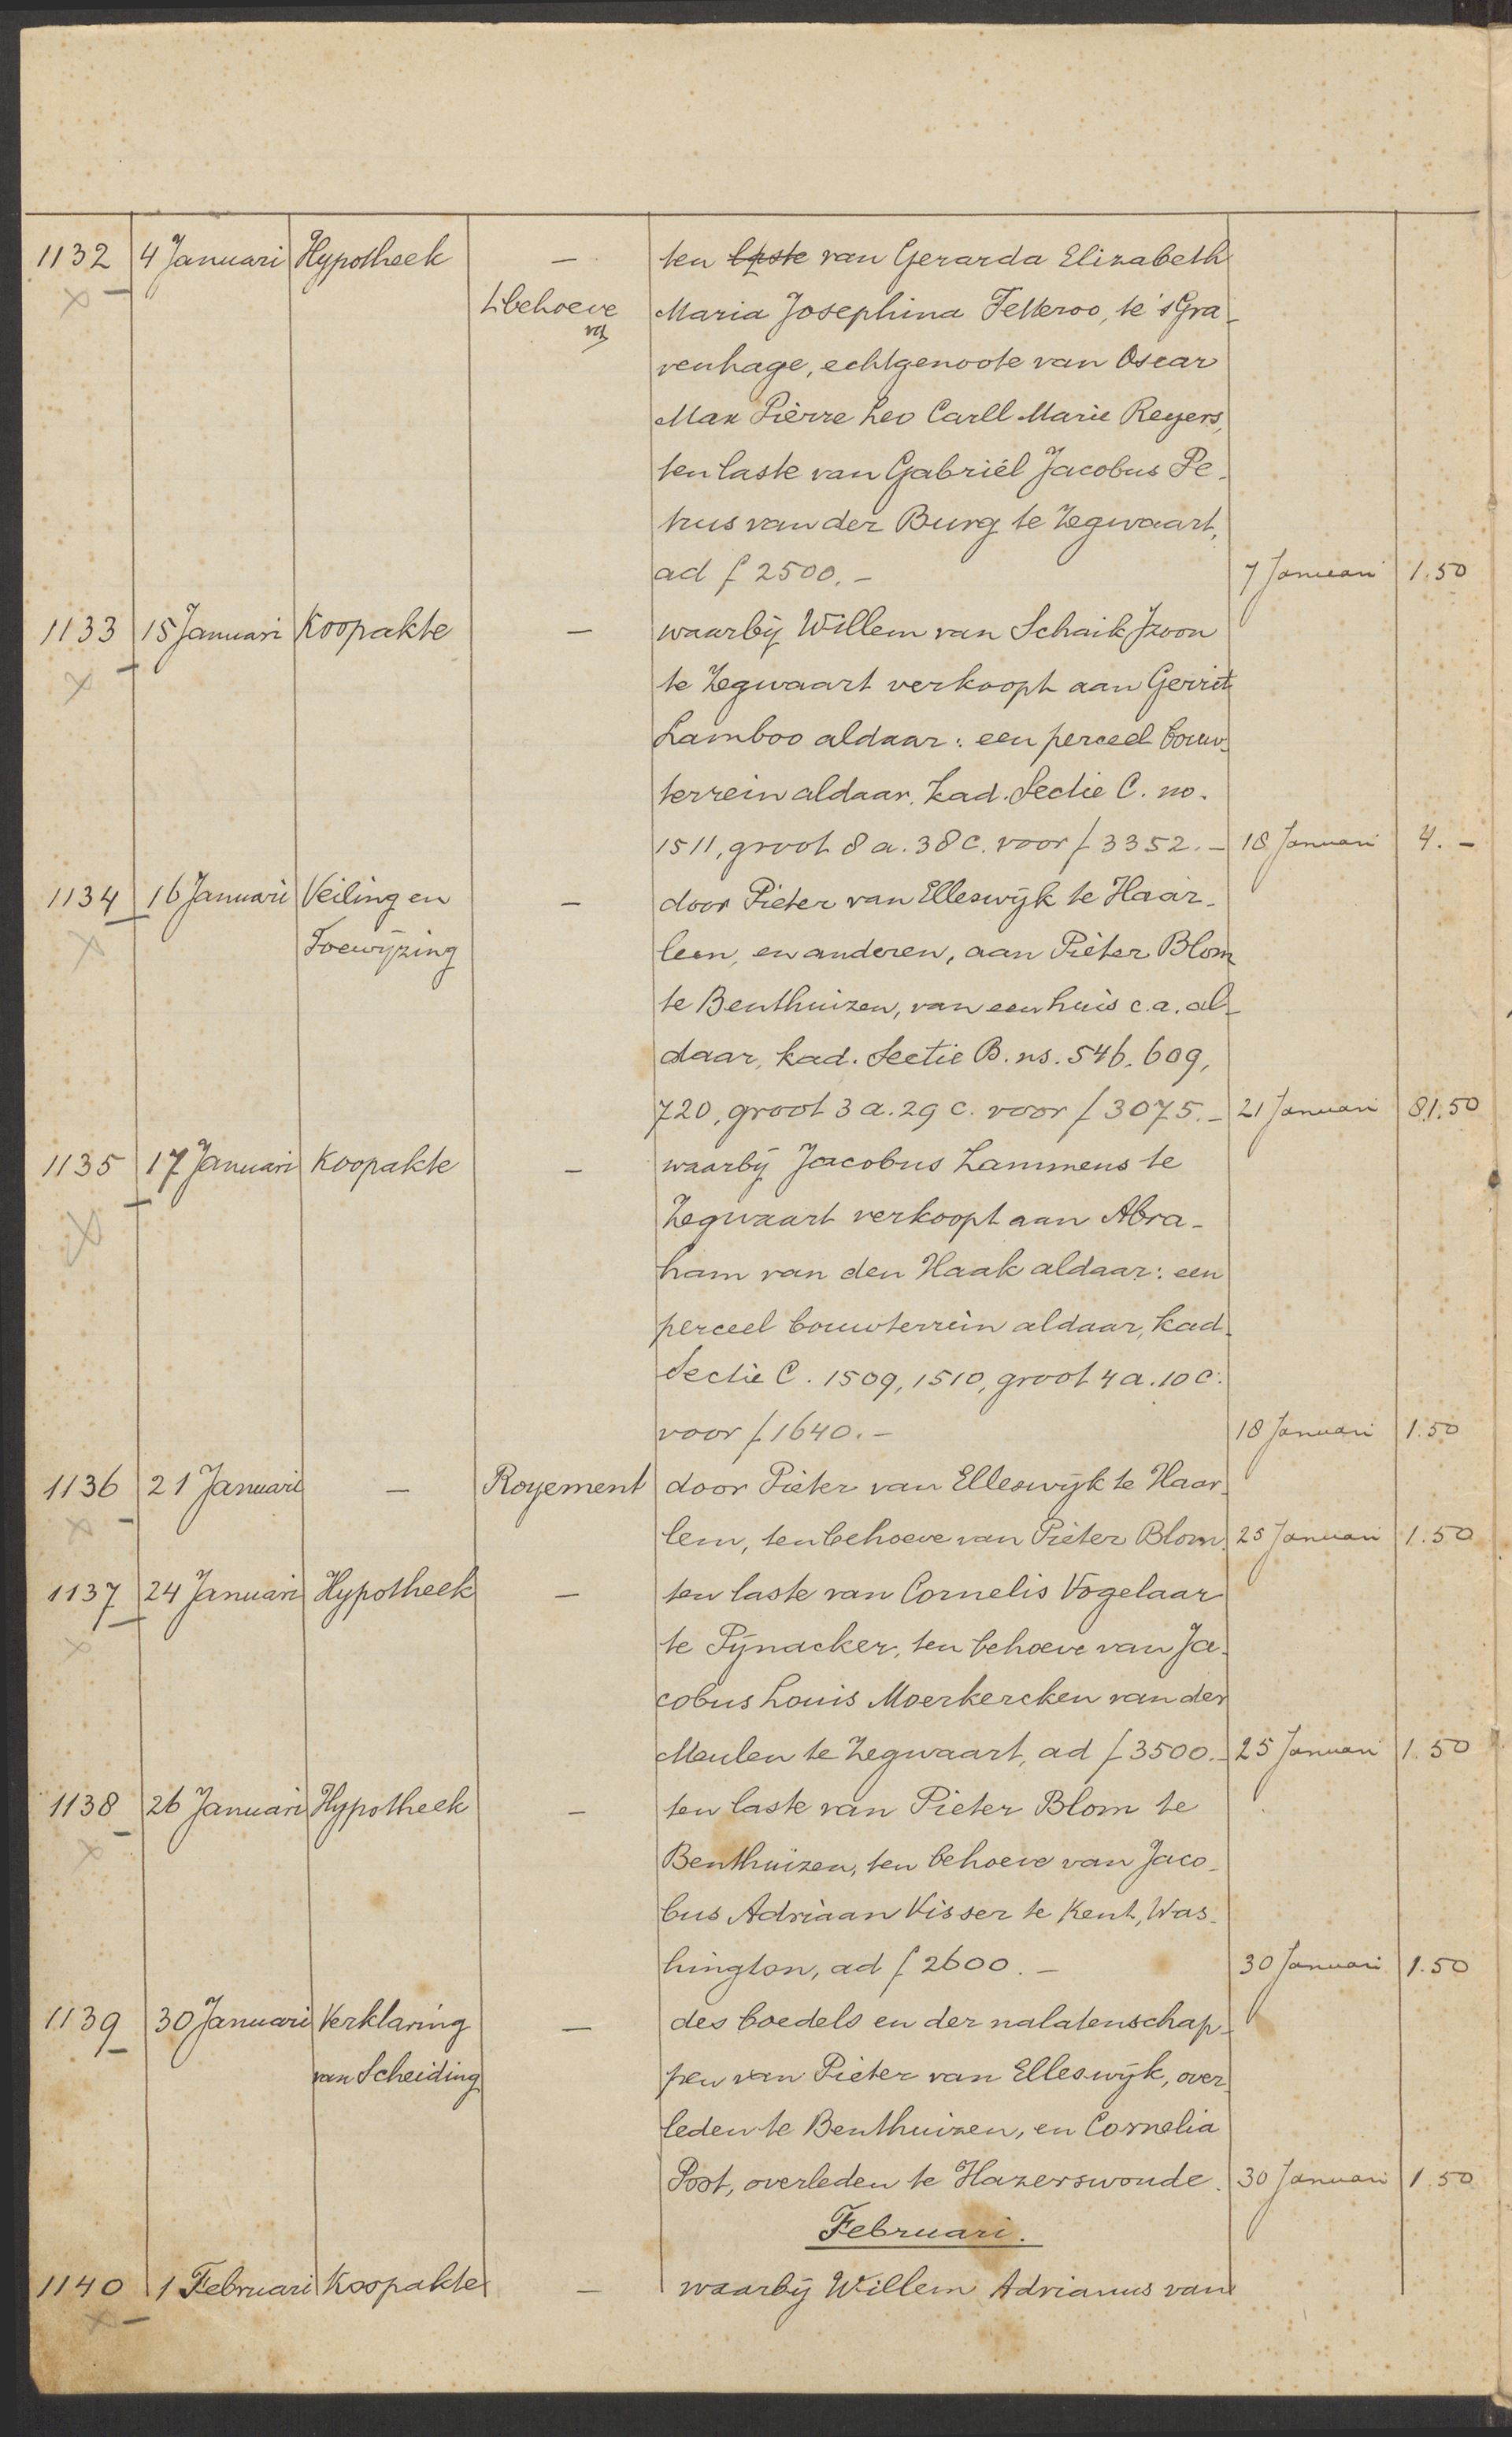 1132 4 Januari Hypotheek — ten laste van Gerarda Elizabeth
L behoeve Maria Josephina Felteroo, te 's Gra-
venhage, echtgenoote van Oscar
Max Pièrre Leo Carll Marie Reyers,
ten laste van Gabriël Jacobus Pe-
trus van der Burg te Zegwaart,
ad f 2500.- 7 Januari 1.50
1133 15 Januari Koopakte — waarbij Willem van Schaik Jzoon
te Zegwaart verkoopt aan Gerrit
Lamboo aldaar: een perceel bouw-
terrein aldaar, kad. Sectie C. no.
1511, groot 8 a. 38 c. voor f 3352.- 18 Januari 4.-
1134 16 Januari Veiling en — door Pieter van Elleswijk te Haar-
Toewijzing lem, en anderen, aan Pieter Blom
te Benthuizen, van een huis c.a. al-
daar, kad. Sectie B. ns. 546. 609,
720, groot 3 a. 29 c. voor f 3075.- 21 Januari 81.50
1135 17 Januari Koopakte — waarbij Jacobus Lammens te
Zegwaart verkoopt aan Abra-
ham van den Haak aldaar: een
perceel bouwterrein aldaar, kad.
Sectie C. 1509, 1510, groot 4 a. 10 c.
voor f 1640.- 18 Januari 1.50
1136 21 Januari — Royement door Pieter van Elleswijk te Haar-
lem, ten behoeve van Pieter Blom. 25 Januari 1.50
1137 24 Januari Hypotheek — ten laste van Cornelis Vogelaar
te Pijnacker, ten behoeve van Ja-
cobus Louis Moerkercken van der
Meulen te Zegwaart, ad f 3500.- 25 Januari 1.50
1138 26 Januari Hypotheek — ten laste van Pieter Blom te
Benthuizen, ten behoeve van Jaco-
bus Adriaan Visser te Kent, Was-
hington, ad f 2600.- 30 Januari 1.50
1139 30 Januari Verklaring — des boedels en der nalatenschap-
van Scheiding pen van Pieter van Elleswijk, over-
leden te Benthuizen, en Cornelia
Post, overleden te Hazerswoude. 30 Januari 1.50
Februari.
1140 1 Februari Koopakte — waarbij Willem Adrianus van